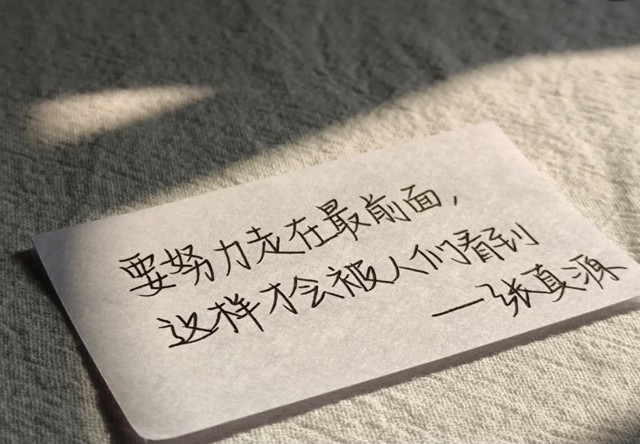 要努力走在最前面，
这样才会被人们看到
—张真源